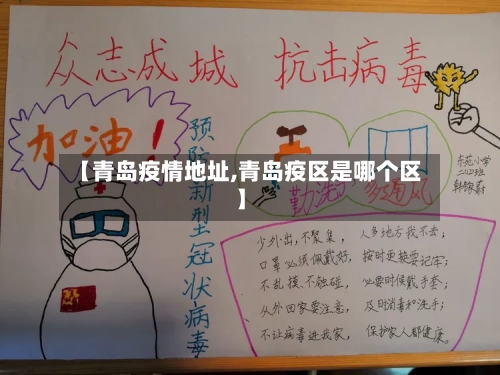 众志成城 抗击病毒
加油！
预防新型冠状病毒
勤洗
多通风
东苑小学
【青岛疫情地址,青岛疫区是哪个区
】
少外出，不聚集，人多地方我不去；
口罩必须佩戴好，按时更换要记牢；
不乱摸、不触碰，必要时候戴手套；
从外回家要注意，及时消毒和洗手；
不让病毒进我家，保护家人都健康。